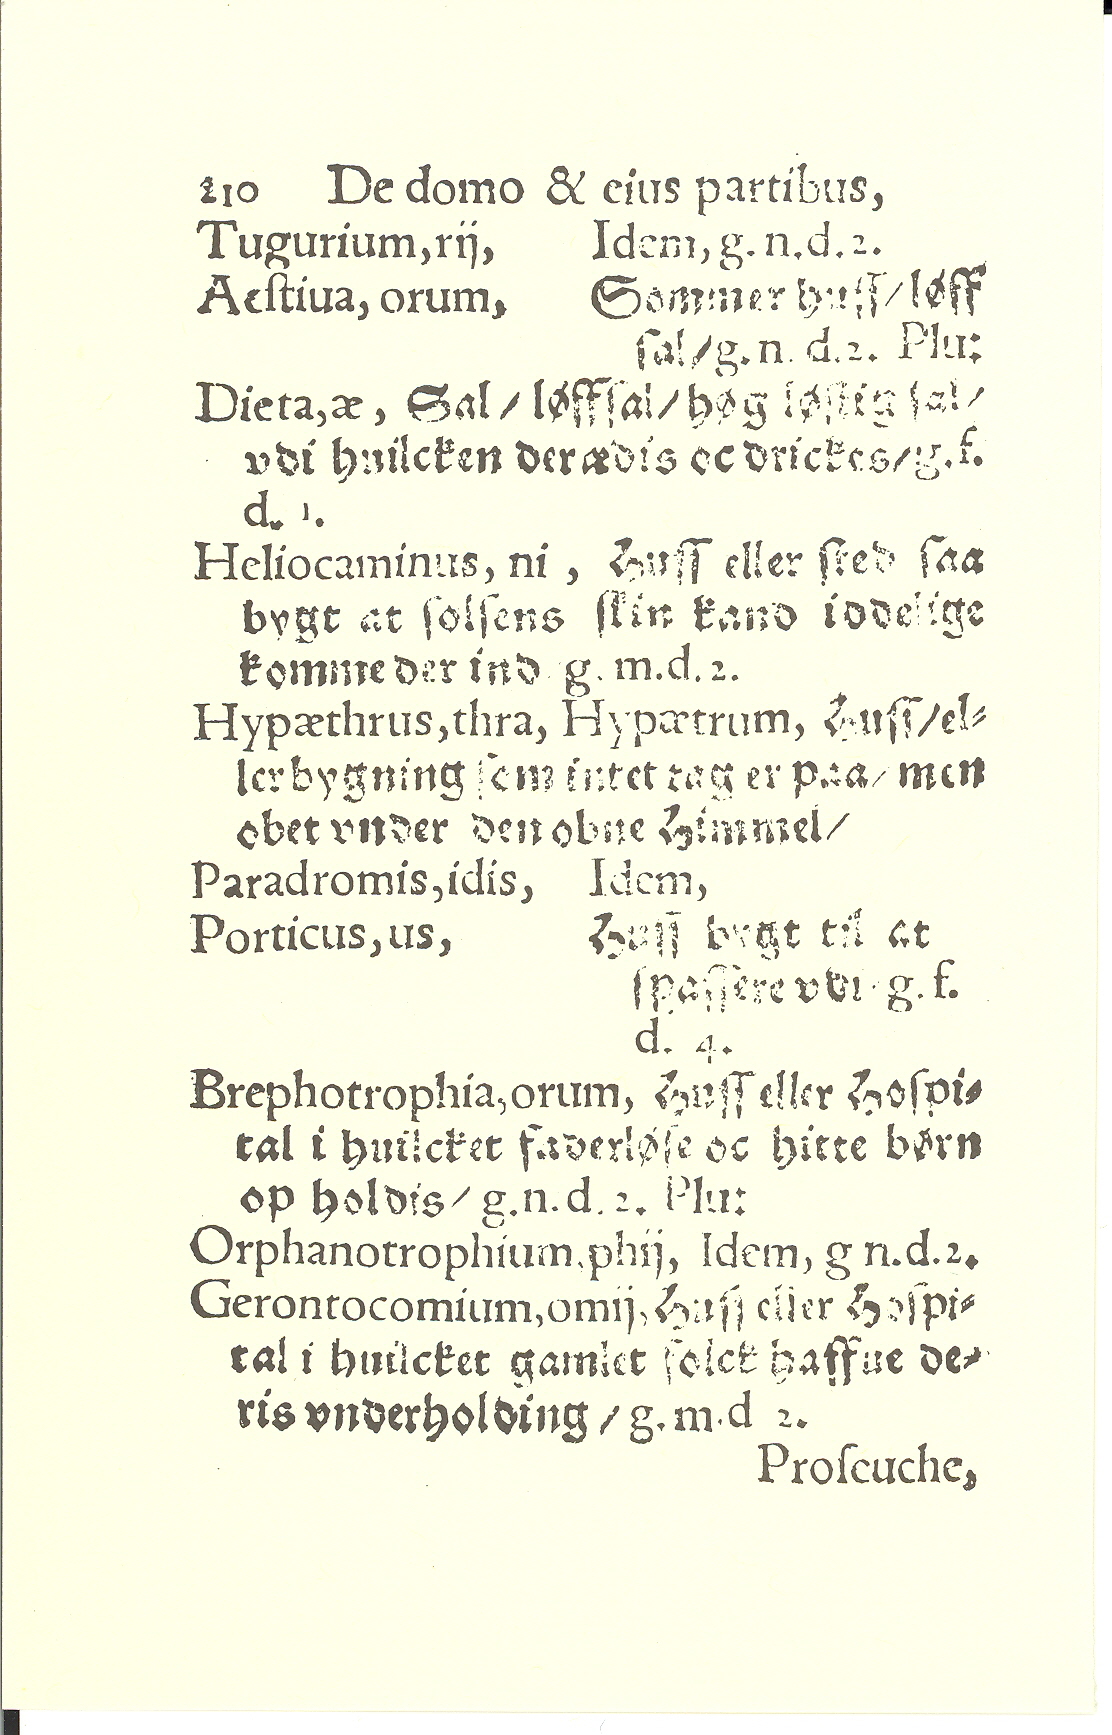 210 De domo & eius partibus,
Tugurium,rij, Idem, g. n. d. 2.
Aeſtiua, orum, Sommer huſſ/ løff
ſal/ g. n. d. 2. Plu:
Dieta,æ, Sal/ løffſal/ høg løſtig ſal/
vdi huilcken der ædis oc drickes/ g. f.
d. 1.
Heliocaminus, ni, Huſſ eller ſted ſaa
bygt at ſolſens ſkin kand iddelige
komme der ind g. m. d. 2.
Hypæthrus,thra, Hypætrum, Huſſ/ el-
ler bygning ſom intet tag er paa/ men
obet vnder den obne Himmel/
Paradromis,idis, Idem,
Porticus,us, Huſſ bygt til at
ſpaſſere vdi g. f.
d. 4.
Brephotrophia,orum, Huſſ eller Hoſpi-
tal i huilcket faderløſe oc hitte børn
op holdis/ g. n. d. 2. Plu:
Orphanotrophium,phij, Idem, g n. d. 2.
Gerontocomium,omij, Huſſ eller Hoſpi-
tal i huilcket gamlet folck haffue de-
ris vnderholding/ g. m. d 2.
Proſeuche,